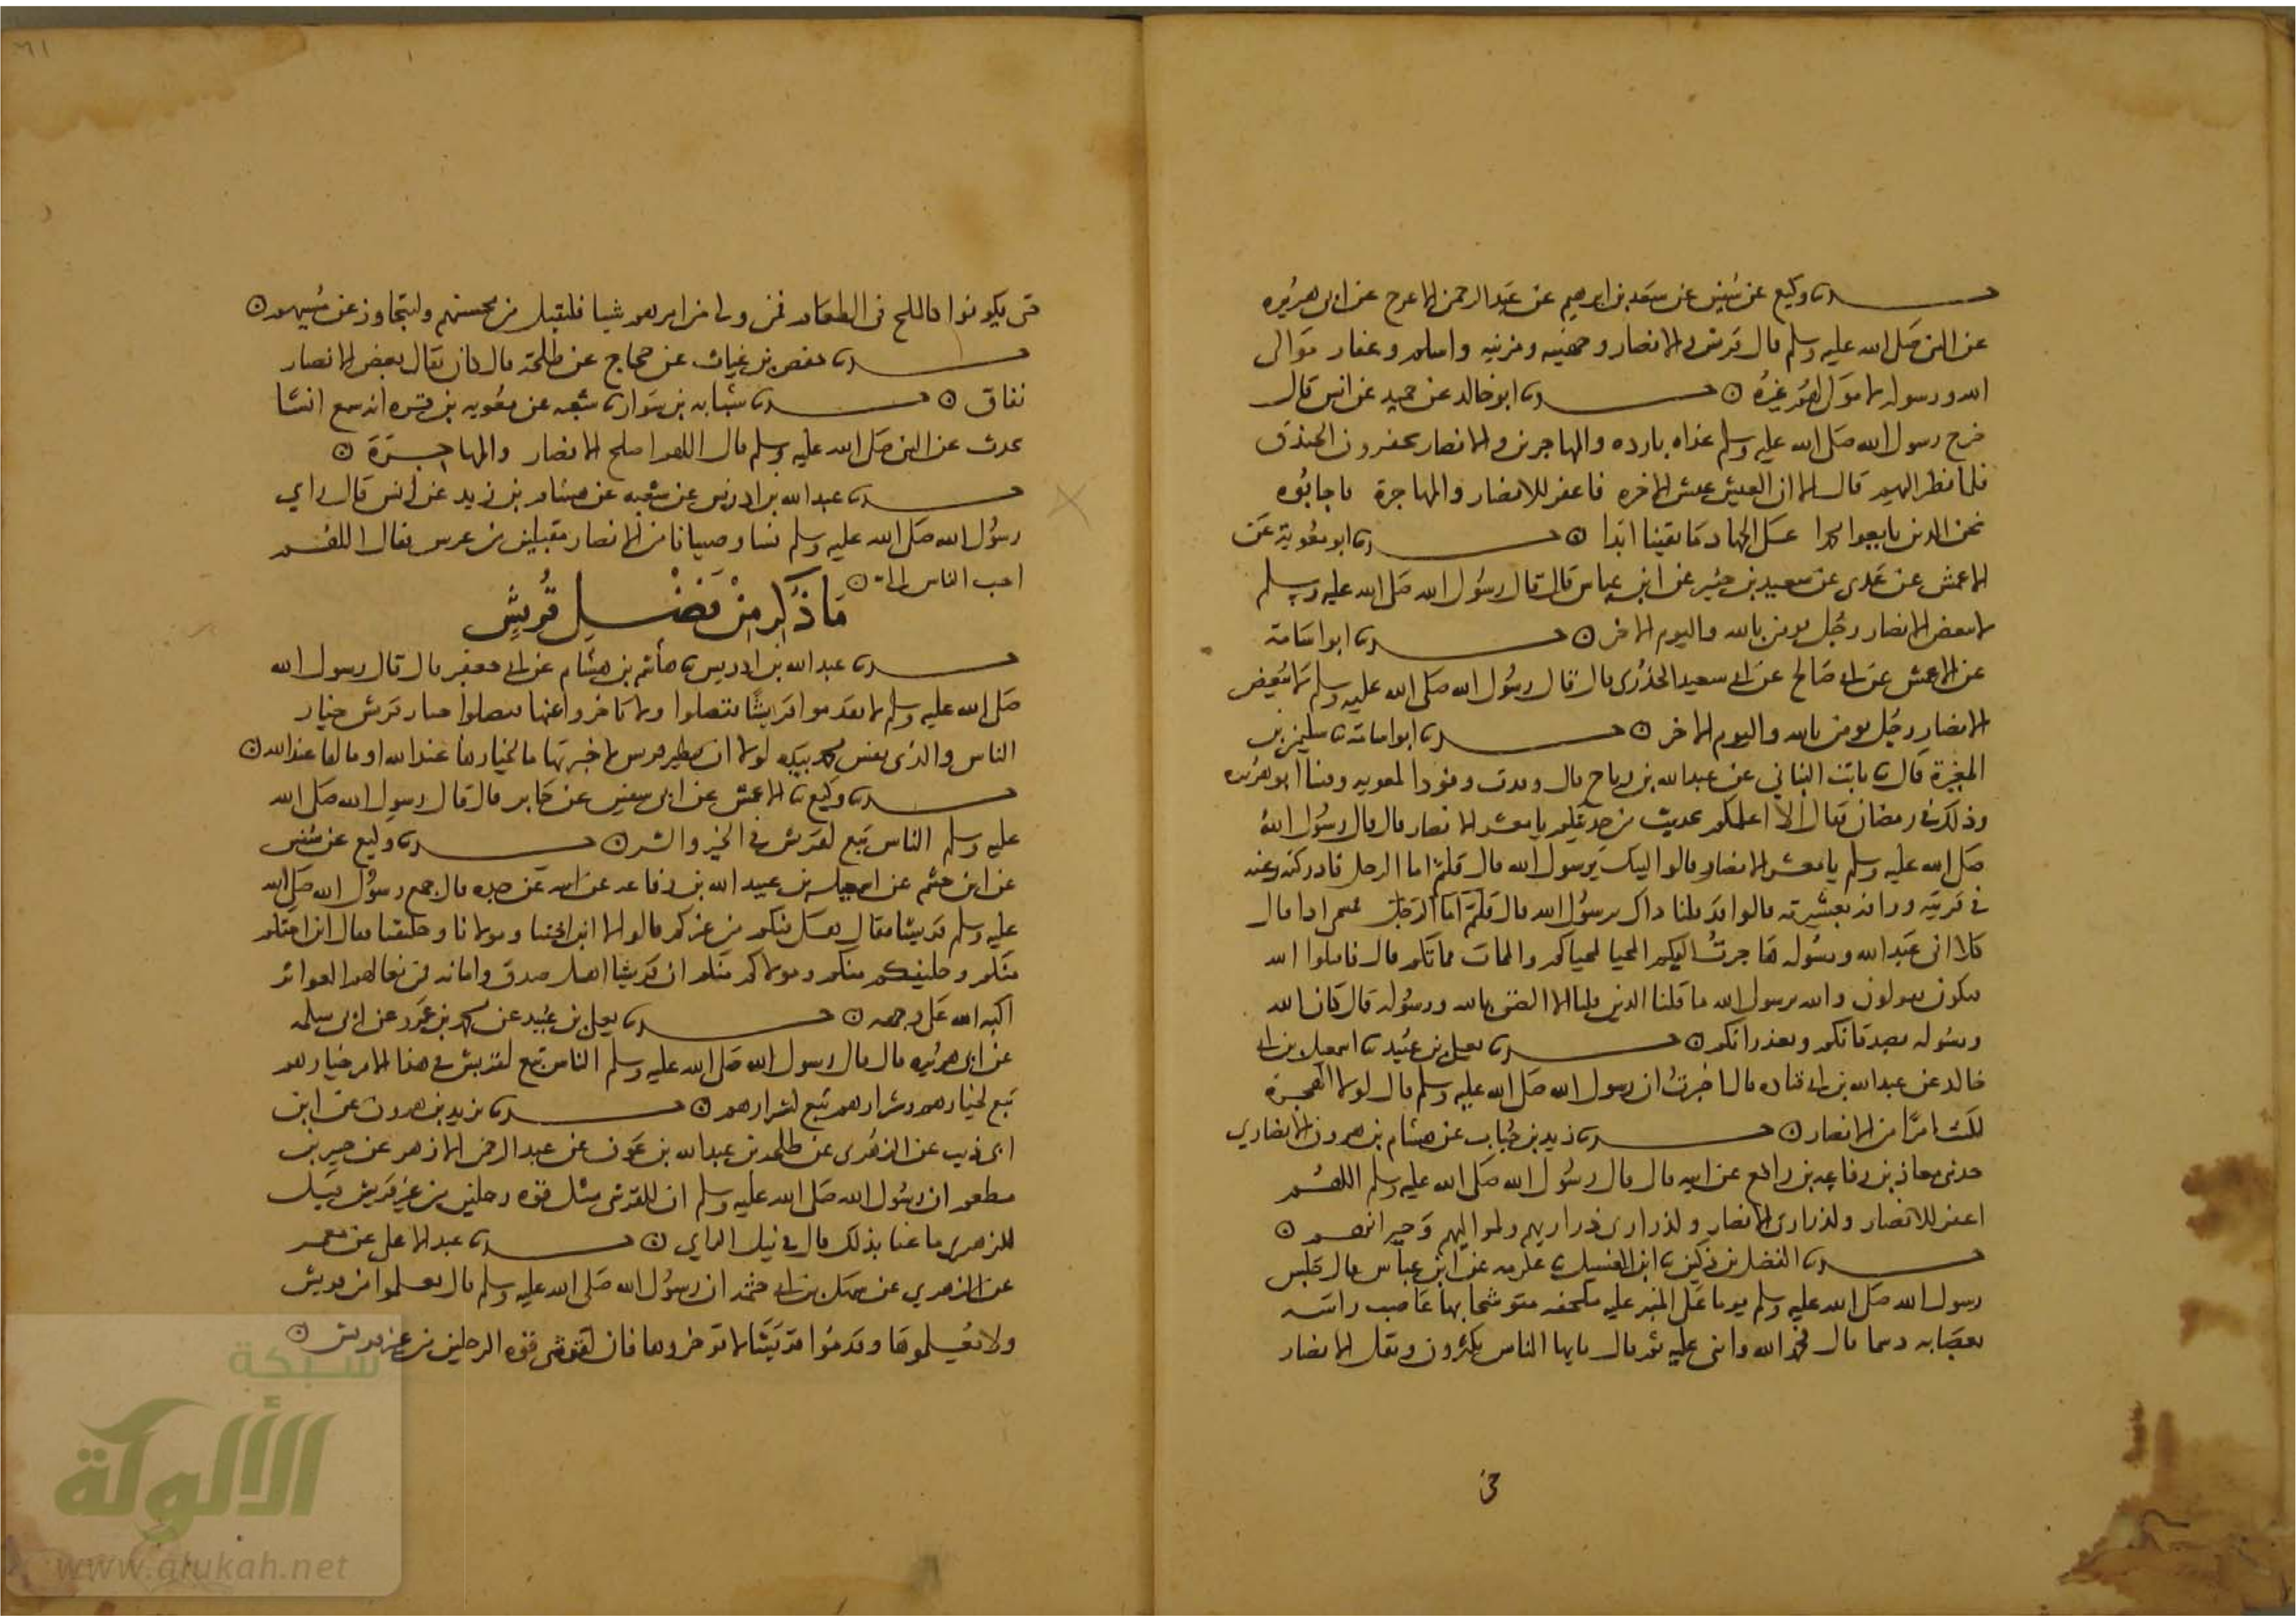 حدثنا وكيع عن سفين عن سعد بن ابرهيم عن عبد الرحمن الاعرج عن ابى هريره
عن النبي صلى الله عليه وسلم قال قريش والانصار وجهينه ومزينه واسلم وغفار موالى
الله ورسوله لا مولى لهم غيره ۞ حدثنا ابو خالد عن حميد عن انس قال
خرج رسول الله صلى الله عليه وسلم غداه بارده والمهاجرين والانصار يحفرون الخندق
فلما نظر اليهم قال الا ان العيش عيش الاخره فاغفر للانصار والمهاجرة فاجابوه
نحن الذين بايعوا محمدا على الجهاد ما بقينا ابدا ۞ حدثنا ابو معوية عن
الاعمش عن عدى عن سعيد بن جبير عن ابن عباس قال قال رسول الله صلى الله عليه وسلم
لا يبغض الانصار رجل يومن بالله واليوم الاخر ۞ حدثنا ابو اسامة
عن الاعمش عن ابى صالح عن ابى سعيد الخدرى قال قال رسول الله صلى الله عليه وسلم لا يبغض
الانصار رجل يومن بالله واليوم الاخر ۞ حدثنا ابو اسامة ثنا سليمن بن
المغيرة قال ثنا ثابت البناني عن عبد الله بن رباح قال وفدت وفود الى معويه وفينا ابو هريره
وذلك فى رمضان فقال الا اعلمكم بحديث من حديثكم يا معشر الانصار قال قال رسول الله
صلى الله عليه وسلم يا معشر الانصار قالوا لبيك يرسول الله قال قلتم اما الرجل فادركته رغبه
في قريته ورافه بعشيرته قالوا قد قلنا ذاك يرسول الله قال قلتم اما الرجل فما اسمى اذا قال
كلا انى عبد الله ورسوله هاجرت اليكم المحيا محياكم والممات مماتكم قال فاقبلوا اليه
يبكون يقولون والله يرسول الله ما قلنا الذين قلنا الا الضن بالله ورسوله قال فان الله
ورسوله يصدقانكم ويعذرانكم ۞ حدثنا يعلى بن عبيد ثنا اسمعيل بن ابى
خالد عن عبد الله بن ابى قتاده قال اخبرت ان رسول الله صلى الله عليه وسلم قال لولا الهجرة
لكنت امرا من الانصار ۞ حدثنا زيد بن حباب عن هشام بن هرون الانصاري
حدثنى معاذ بن رفاعه بن رافع عن ابيه قال قال رسول الله صلى الله عليه وسلم اللهم
اغفر للانصار ولذرارى الانصار ولذرارى ذراريهم ولمواليهم وجيرانهم ۞
حدثنا الفضل بن دكين ثنا ابن الغسيل ثنا عكرمه عن ابن عباس قال جلس
رسول الله صلى الله عليه وسلم يوما على المنبر عليه ملحفه متوشحا بها عاصب راسه
بعصابه دسما قال فحمد الله واثنى عليه ثم قال يايها الناس يكثرون وتقل الانصار
حتى
حتى يكونوا كالملح فى الطعام فمن ولى من امرهم شيا فليقبل من محسنهم وليتجاوز عن مسيهم ۞
حدثنا حفص بن غياث عن حجاج عن طلحة قال كان يقال بغض الانصار
نفاق ۞ حدثنا شبابه بن سوار ثنا شعبه عن معويه بن قره انه سمع انسا
يحدث عن النبي صلى الله عليه وسلم قال اللهم اصلح الانصار والمهاجرة ۞
حدثنا عبد الله بن ادريس عن شعبه عن هشام بن زيد عن انس قال راي
رسول الله صلى الله عليه وسلم نسا وصبيانا من الانصار مقبلين من عرس فقال اللهم
احب الناس الى ۞
ما ذكر من فضل قريش
حدثنا عبد الله بن ادريس ثنا هاشم بن هشام عن ابى جعفر قال قال رسول الله
صلى الله عليه وسلم لا تقدموا قريشا فتضلوا ولا تاخروا عنها فتضلوا خيار قريش خيار
الناس والذى نفس محمد بيده لولا ان تبطر قريش لاخبرتها ما لخيارها عند الله او ما لها عند الله ۞
حدثنا وكيع ثنا الاعمش عن ابى سفين عن جابر قال قال رسول الله صلى الله
عليه وسلم الناس تبع لقريش فى الخير والشر ۞ حدثنا وكيع عن سفين
عن ابن خثيم عن اسمعيل بن عبيد الله بن رفاعه عن ابيه عن جده قال جمع رسول الله صلى الله
عليه وسلم قريشا فقال هل فيكم من غيركم قالوا لا الا ابن اختنا ومولانا وحليفنا فقال ابن اختكم
منكم وحليفكم منكم ومولاكم منكم ان قريشا اهل صدق وامانه فمن بغا لهم العواثر
اكبه الله على وجهه ۞ حدثنا يعلى بن عبيد عن محمد بن عمرو عن ابى سلمه
عن ابى هريره قال قال رسول الله صلى الله عليه وسلم الناس تبع لقريش فى هذا الامر خيارهم
تبع لخيارهم وشرارهم تبع لشرارهم ۞ حدثنا يزيد بن هرون عن ابن
ابى ذيب عن الزهرى عن طلحه بن عبد الله بن عوف عن عبد الرحمن الازهر عن جبير بن
مطعم ان رسول الله صلى الله عليه وسلم ان للقرشى مثل قوه رجلين من غير قريش قيل
للزهري ما عنا بذلك قال فى نبل الراي ۞ حدثنا عبد الاعلى عن معمر
عن الزهري عن سهل بن ابى حثمه ان رسول الله صلى الله عليه وسلم قال تعلموا من قريش
ولا تعلموها وقدموا قريشا ولا توخروها فان للقرشى قوه الرجلين من غير قريش ۞
شبكة
الألوكة
www.alukah.net